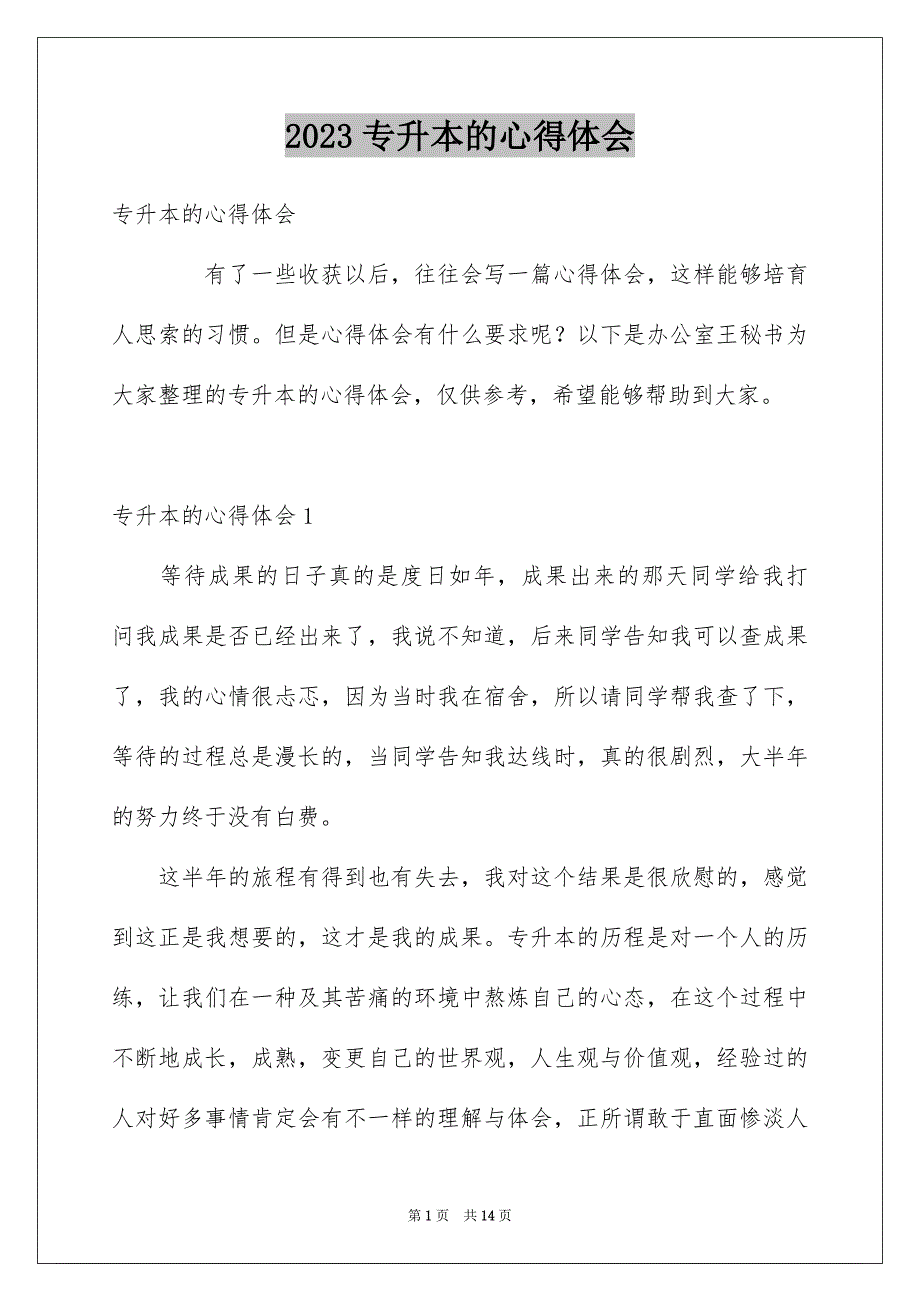 2023专升本的心得体会
专升本的心得体会
有了一些收获以后，往往会写一篇心得体会，这样能够培育
人思索的习惯。但是心得体会有什么要求呢？以下是办公室王秘书为
大家整理的专升本的心得体会，仅供参考，希望能够帮助到大家。
专升本的心得体会1
等待成果的日子真的是度日如年，成果出来的那天同学给我打
问我成果是否已经出来了，我说不知道，后来同学告知我可以查成果
了，我的心情很忐忑，因为当时我在宿舍，所以请同学帮我查了下，
等待的过程总是漫长的，当同学告知我达线时，真的很剧烈，大半年
的努力终于没有白费。
这半年的旅程有得到也有失去，我对这个结果是很欣慰的，感觉
到这正是我想要的，这才是我的成果。专升本的历程是对一个人的历
练，让我们在一种及其苦痛的环境中熬炼自己的心态，在这个过程中
不断地成长，成熟，变更自己的世界观，人生观与价值观，经验过的
人对好多事情肯定会有不一样的理解与体会，正所谓敢于直面惨淡人
第1页 共14页